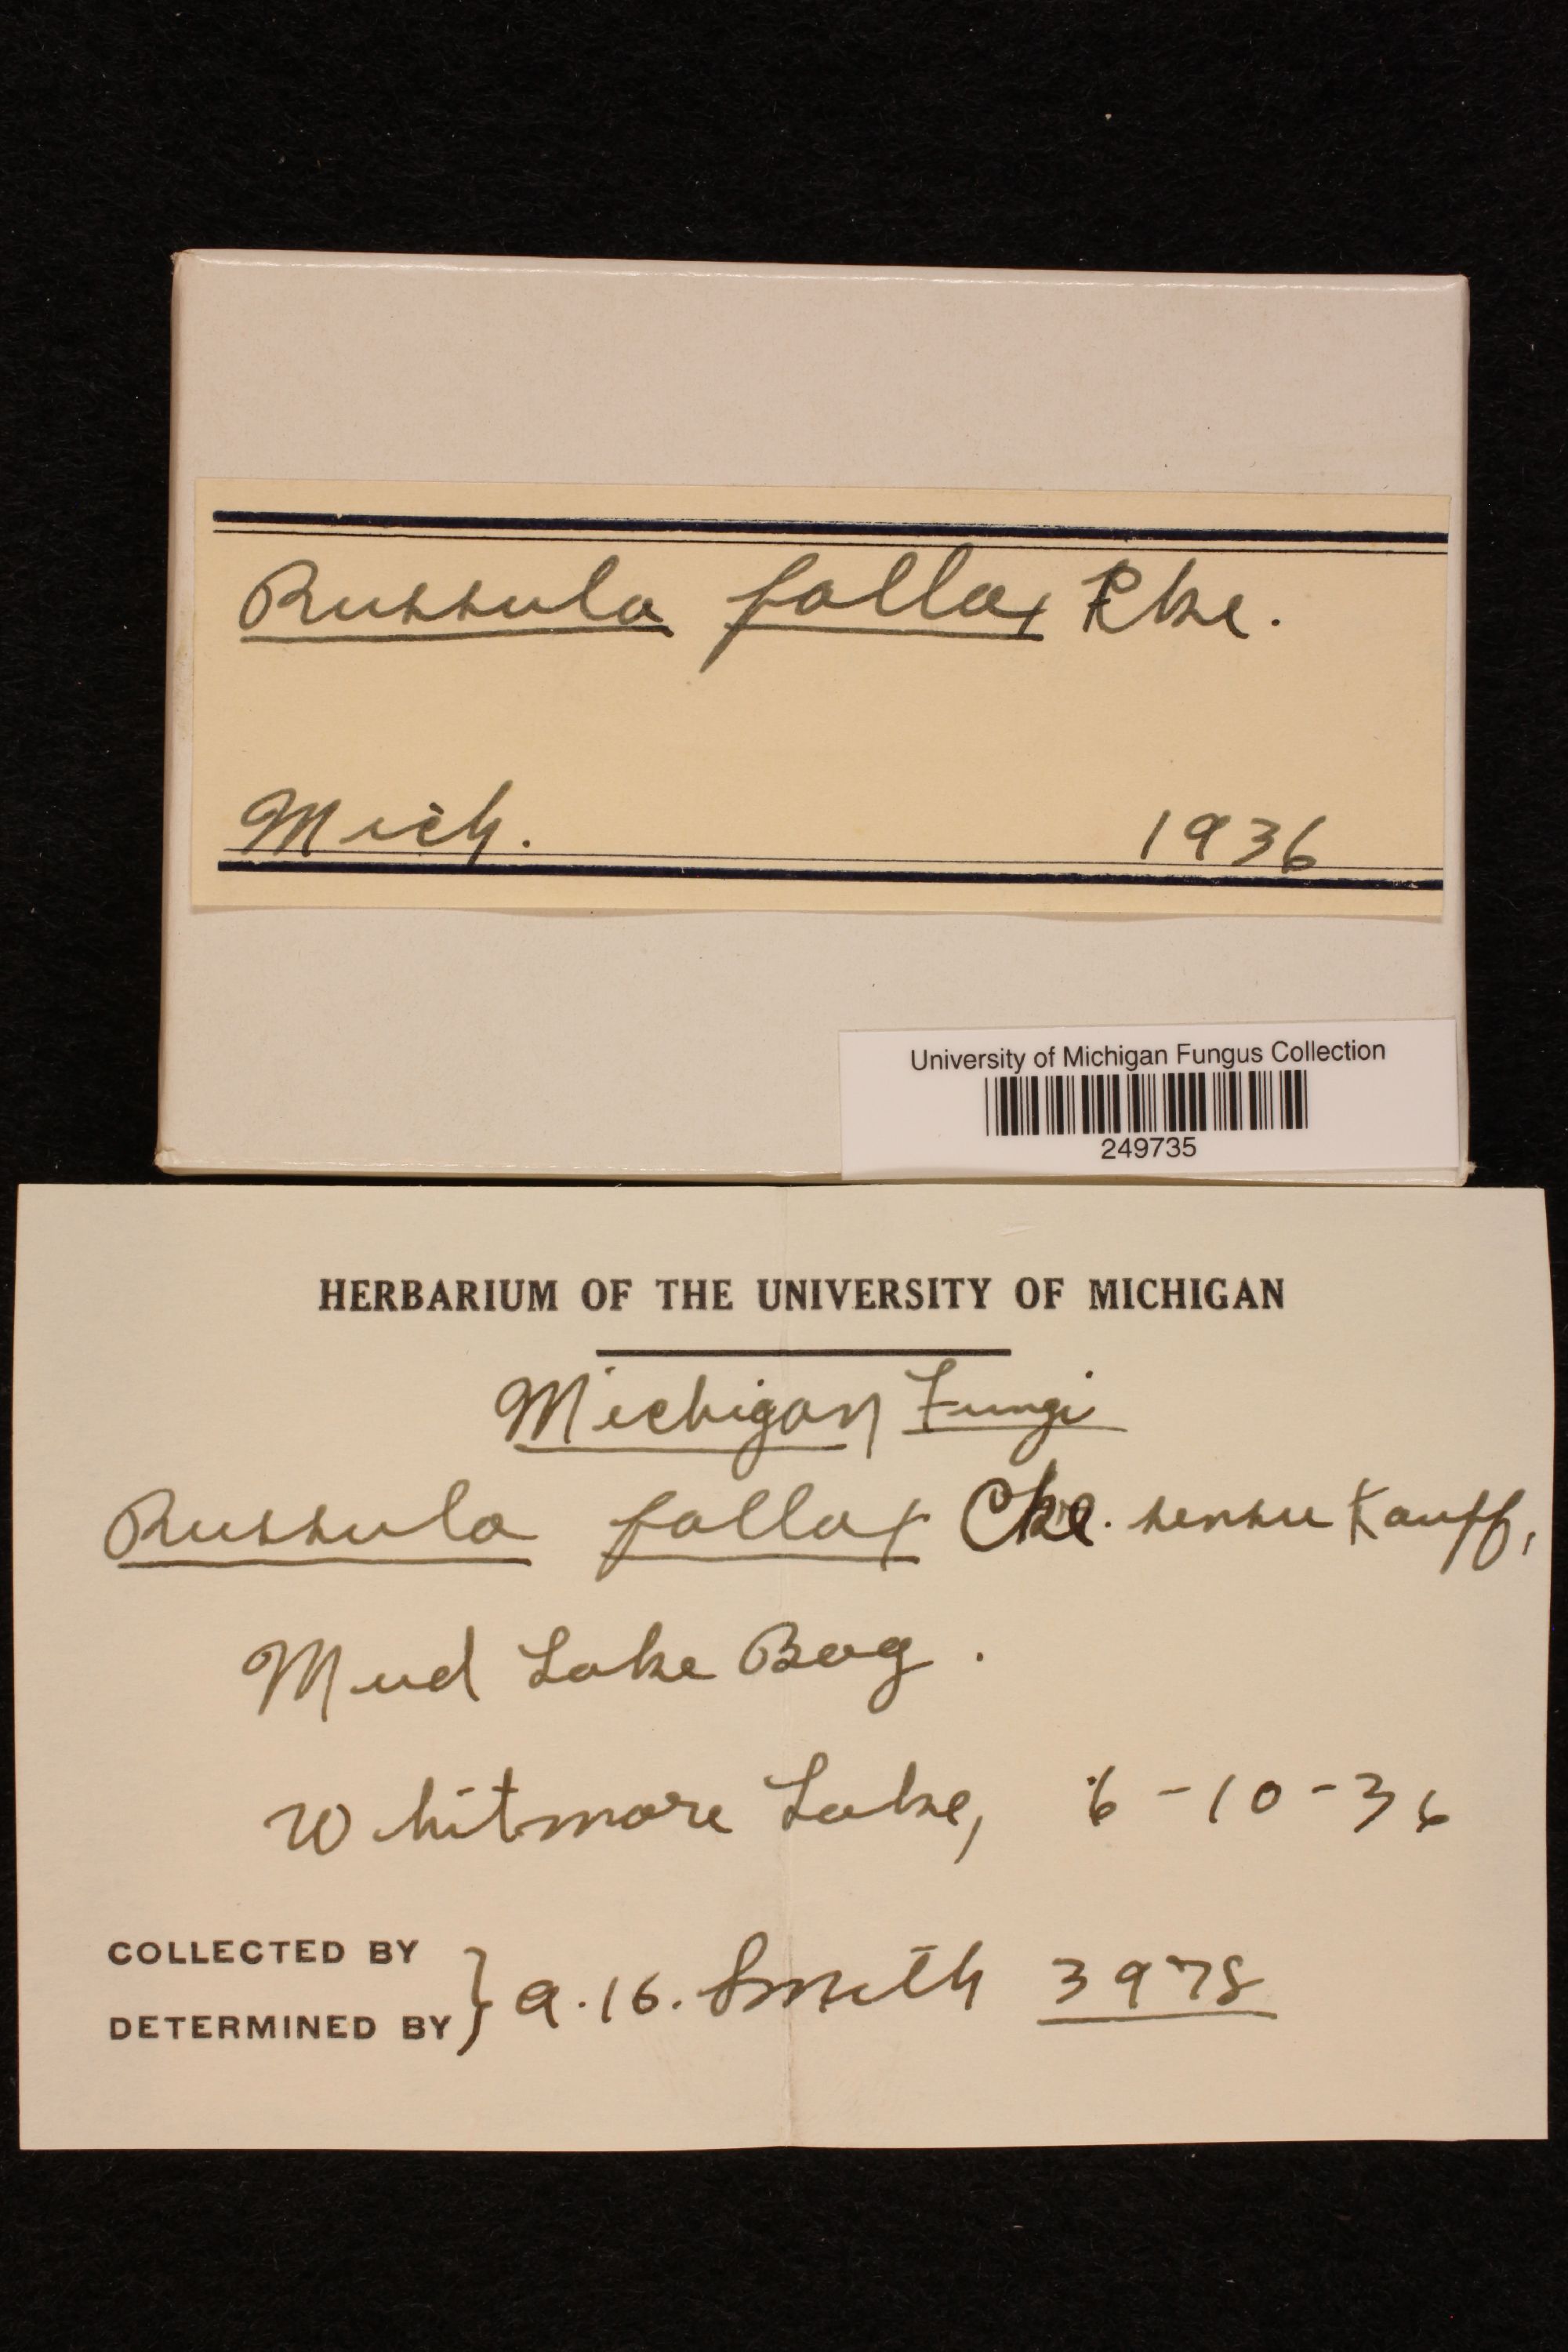 Russula fallax Cke.
Mich. 1936
University of Michigan Fungus Collection
249735
HERBARIUM OF THE UNIVERSITY OF MICHIGAN
Michigan Fungi
Russula fallax Cke. sensu Kauff.
Mud Lake Bog.
Whitmore Lake, 6-10-36
COLLECTED BY
DETERMINED BY } A. H. Smith 3978